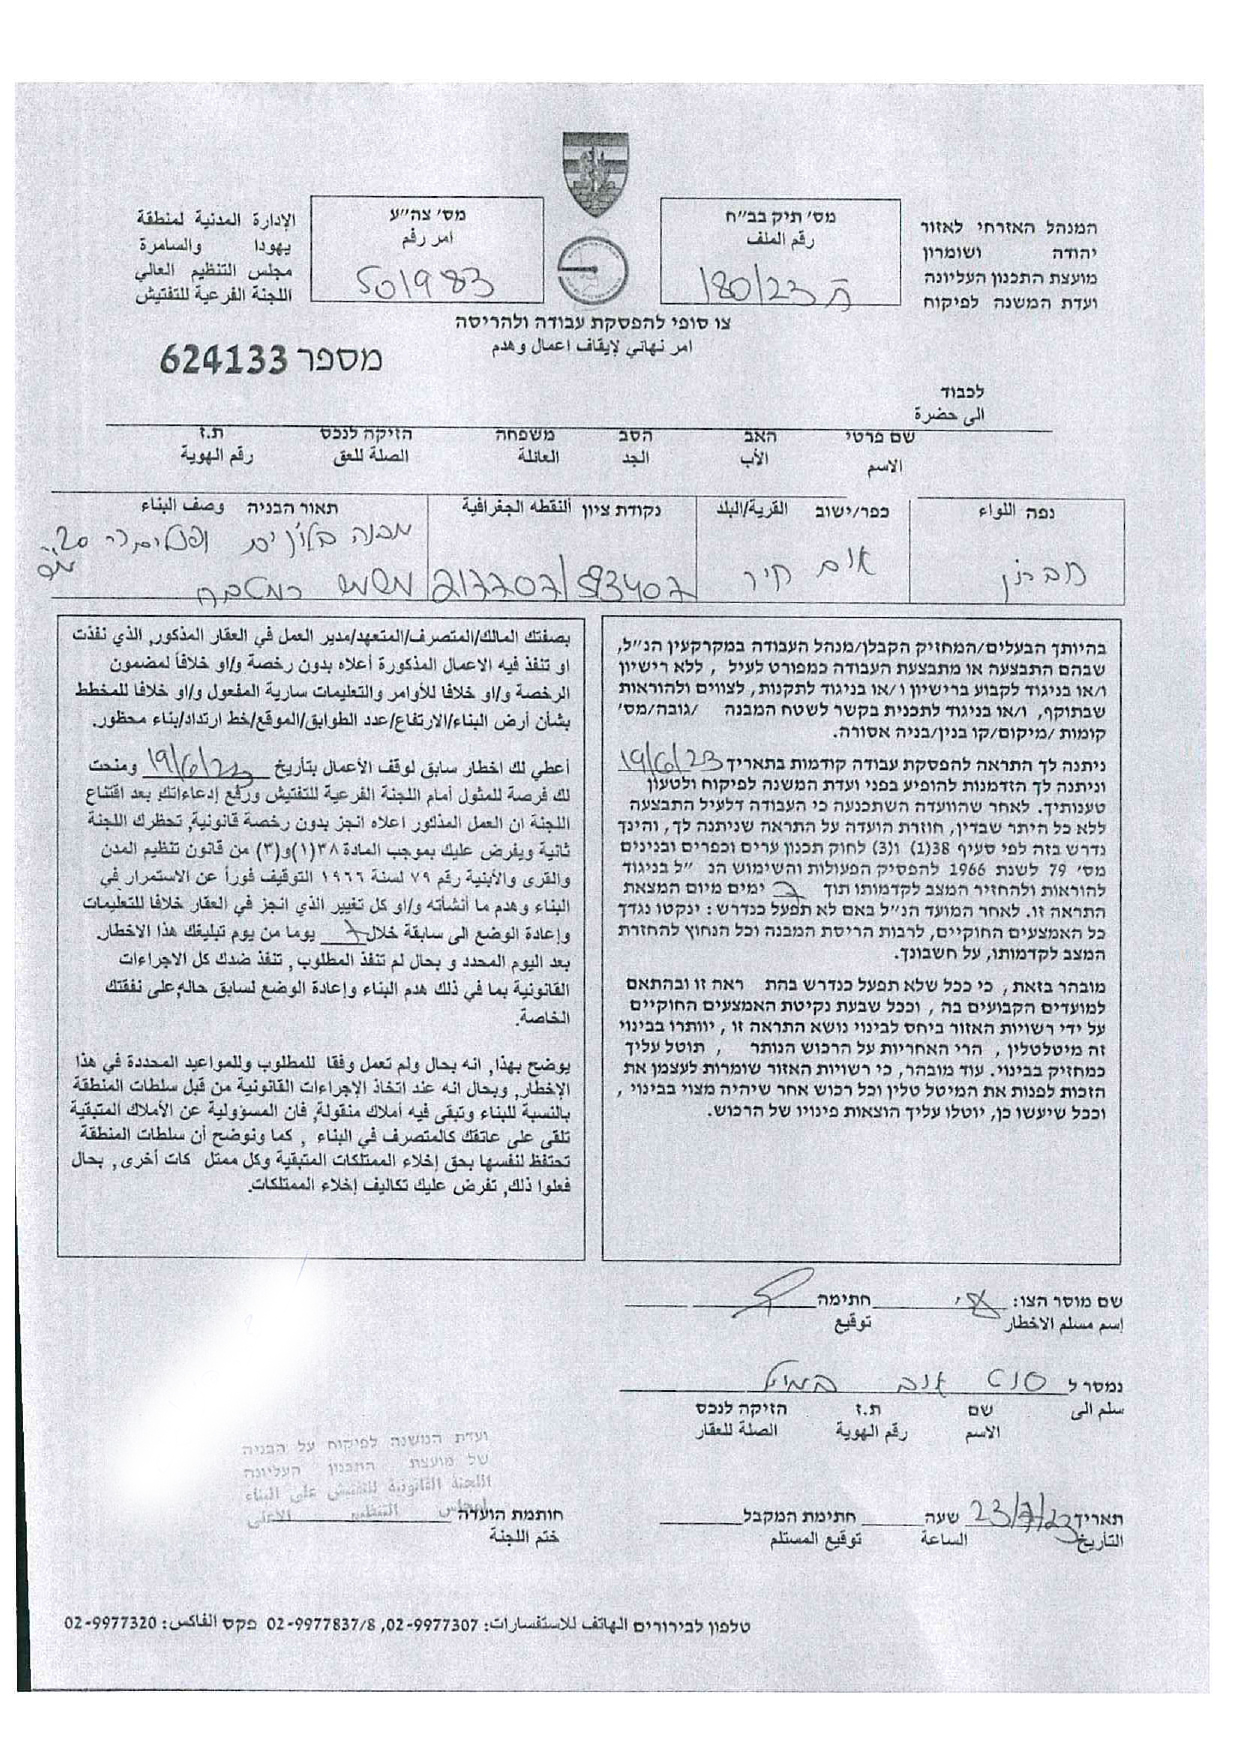 המנהל האזרחי לאזור
יהודה ושומרון
מועצת התכנון העליונה
ועדת המשנה לפיקוח
מס׳ תיק בב״ח
رقم الملف
180/23 ח
מס׳ צה״ע
امر رقم
501983
الإدارة المدنية لمنطقة
يهودا والسامرة
مجلس التنظيم العالي
اللجنة الفرعية للتفتيش
צו סופי להפסקת עבודה ולהריסה
امر نهائي لايقاف اعمال وهدم
מספר 624133
לכבוד
الى حضرة
שם פרטי האב הסב משפחה הזיקה לנכס ת.ז
الاسم الأب الجد العائلة الصلة للعق رقم الهوية
נפה اللواء
חברון
כפר/ישוב القرية/البلد
אום חיר
נקודת ציון النقطه الجغرافية
217707/593407
תאור הבניה وصف البناء
מבנה
משמש כמטבח
בהיותך הבעלים/המחזיק הקבלן/מנהל העבודה במקרקעין הנ״ל,
שבהם התבצעה או מתבצעת העבודה כמפורט לעיל , ללא רישיון
ו/או בניגוד לקבוע ברישיון ו/או בניגוד לתקנות, לצווים ולהוראות
שבתוקף, ו/או בניגוד לתכנית בקשר לשטח המבנה /גובה/מס׳
קומות /מיקום/קו בנין/בניה אסורה.
ניתנה לך התראה להפסקת עבודה קודמות בתאריך 19/6/23
וניתנה לך הזדמנות להופיע בפני ועדת המשנה לפיקוח ולטעון
טענותיך. לאחר שהוועדה השתכנעה כי העבודה דלעיל התבצעה
ללא כל היתר שבדין, חוזרת הועדה על התראה שניתנה לך, והינך
נדרש בזה לפי סעיף 38(1) ו(3) לחוק תכנון ערים וכפרים ובנינים
מס׳ 79 לשנת 1966 להפסיק הפעולות והשימוש הנ ״ל בניגוד
להוראות ולהחזיר המצב לקדמותו תוך 7 ימים מיום המצאת
התראה זו. לאחר המועד הנ״ל באם לא תפעל כנדרש : ינקטו נגדך
כל האמצעים החוקיים, לרבות הריסת המבנה וכל הנחוץ להחזרת
המצב לקדמותו, על חשבונך.
מובהר בזאת , כי ככל שלא תפעל כנדרש בהת ראה זו ובהתאם
למועדים הקבועים בה , וככל שבעת נקיטת האמצעים החוקיים
על ידי רשויות האזור ביחס לבינוי נושא התראה זו , יוותרו בבינוי
זה מיטלטלין , הרי האחריות על הרכוש הנותר , תוטל עליך
כמחזיק בבינוי. עוד מובהר, כי רשויות האזור שומרות לעצמן את
הזכות לפנות את המיטל טלין וכל רכוש אחר שיהיה מצוי בבינוי ,
וככל שיעשו כן, יוטלו עליך הוצאות פינויו של הרכוש.
بصفتك المالك/المتصرف/المتعهد/مدير العمل في العقار المذكور, الذي نفذت
او تنفذ فيه الاعمال المذكورة أعلاه بدون رخصة و/او خلافاً لمضمون
الرخصة و/او خلافا للأوامر والتعليمات سارية المفعول و/او خلافا للمخطط
بشأن أرض البناء/الارتفاع/عدد الطوابق/الموقع/خط ارتداد/بناء محظور.
أعطي لك اخطار سابق لوقف الأعمال بتأريخ 19/6/23 ومنحت
لك فرصة للمثول أمام اللجنة الفرعية للتفتيش ورفع إدعاءاتك. بعد اقتناع
اللجنة ان العمل المذكور اعلاه انجز بدون رخصة قانونية, تحظرك اللجنة
ثانية ويفرض عليك بموجب المادة ٣٨(١)و(٣) من قانون تنظيم المدن
والقرى والأبنية رقم ٧٩ لسنة ١٩٦٦ التوقيف فوراً عن الاستمرار في
البناء وهدم ما أنشأته و/او كل تغيير الذي انجز في العقار خلافا للتعليمات
وإعادة الوضع الى سابقة خلال 7 يوما من يوم تبليغك هذا الاخطار.
بعد اليوم المحدد و بحال لم تنفذ المطلوب, تنفذ ضدك كل الاجراءات
القانونية بما في ذلك هدم البناء وإعادة الوضع لسابق حاله,على نفقتك
الخاصة.
يوضح بهذا, انه بحال ولم تعمل وفقا للمطلوب وللمواعيد المحددة في هذا
الإخطار, وبحال انه عند اتخاذ الإجراءات القانونية من قبل سلطات المنطقة
بالنسبة للبناء وتبقى فيه أملاك منقولة, فان المسؤولية عن الأملاك المتبقية
تلقى على عاتقك كالمتصرف في البناء , كما ونوضح أن سلطات المنطقة
تحتفظ لنفسها بحق إخلاء الممتلكات المتبقية وكل ممتل كات أخرى, بحال
فعلوا ذلك, تفرض عليك تكاليف إخلاء الممتلكات.
שם מוסר הצו: חתימה
إسم مسلم الاخطار توقيع
נמסר ל
سلم الى
שם ת.ז הזיקה לנכס
الاسم رقم الهوية الصلة للعقار
ועדת המשנה לפיקוח על הבניה
של מועצת התכנון העליונה
اللجنة القانونية للتفتيش على البناء
لمجلس التنظيم الأعلى
תאריך 23/7/23 שעה חתימת המקבל חותמת הועדה
التأريخ الساعة توقيع المستلم ختم اللجنة
טלפון לבירורים الهاتف للاستفسارات: 02-9977307, 02-9977837/8 פקס الفاكس: 02-9977320